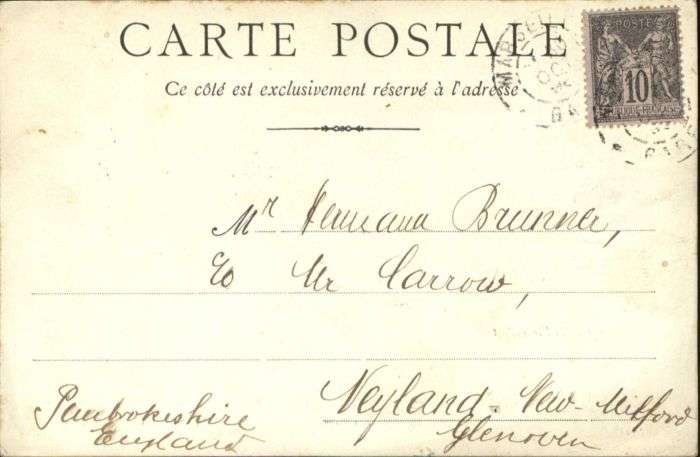 CARTE POSTALE
Ce côté est exclusivement réservé à l'adresse
POSTES
10
Mr Hermann Brunner,
c/o Mr Carrow,
Neyland - New-Milford
Glenoven
Pembrokeshire
England